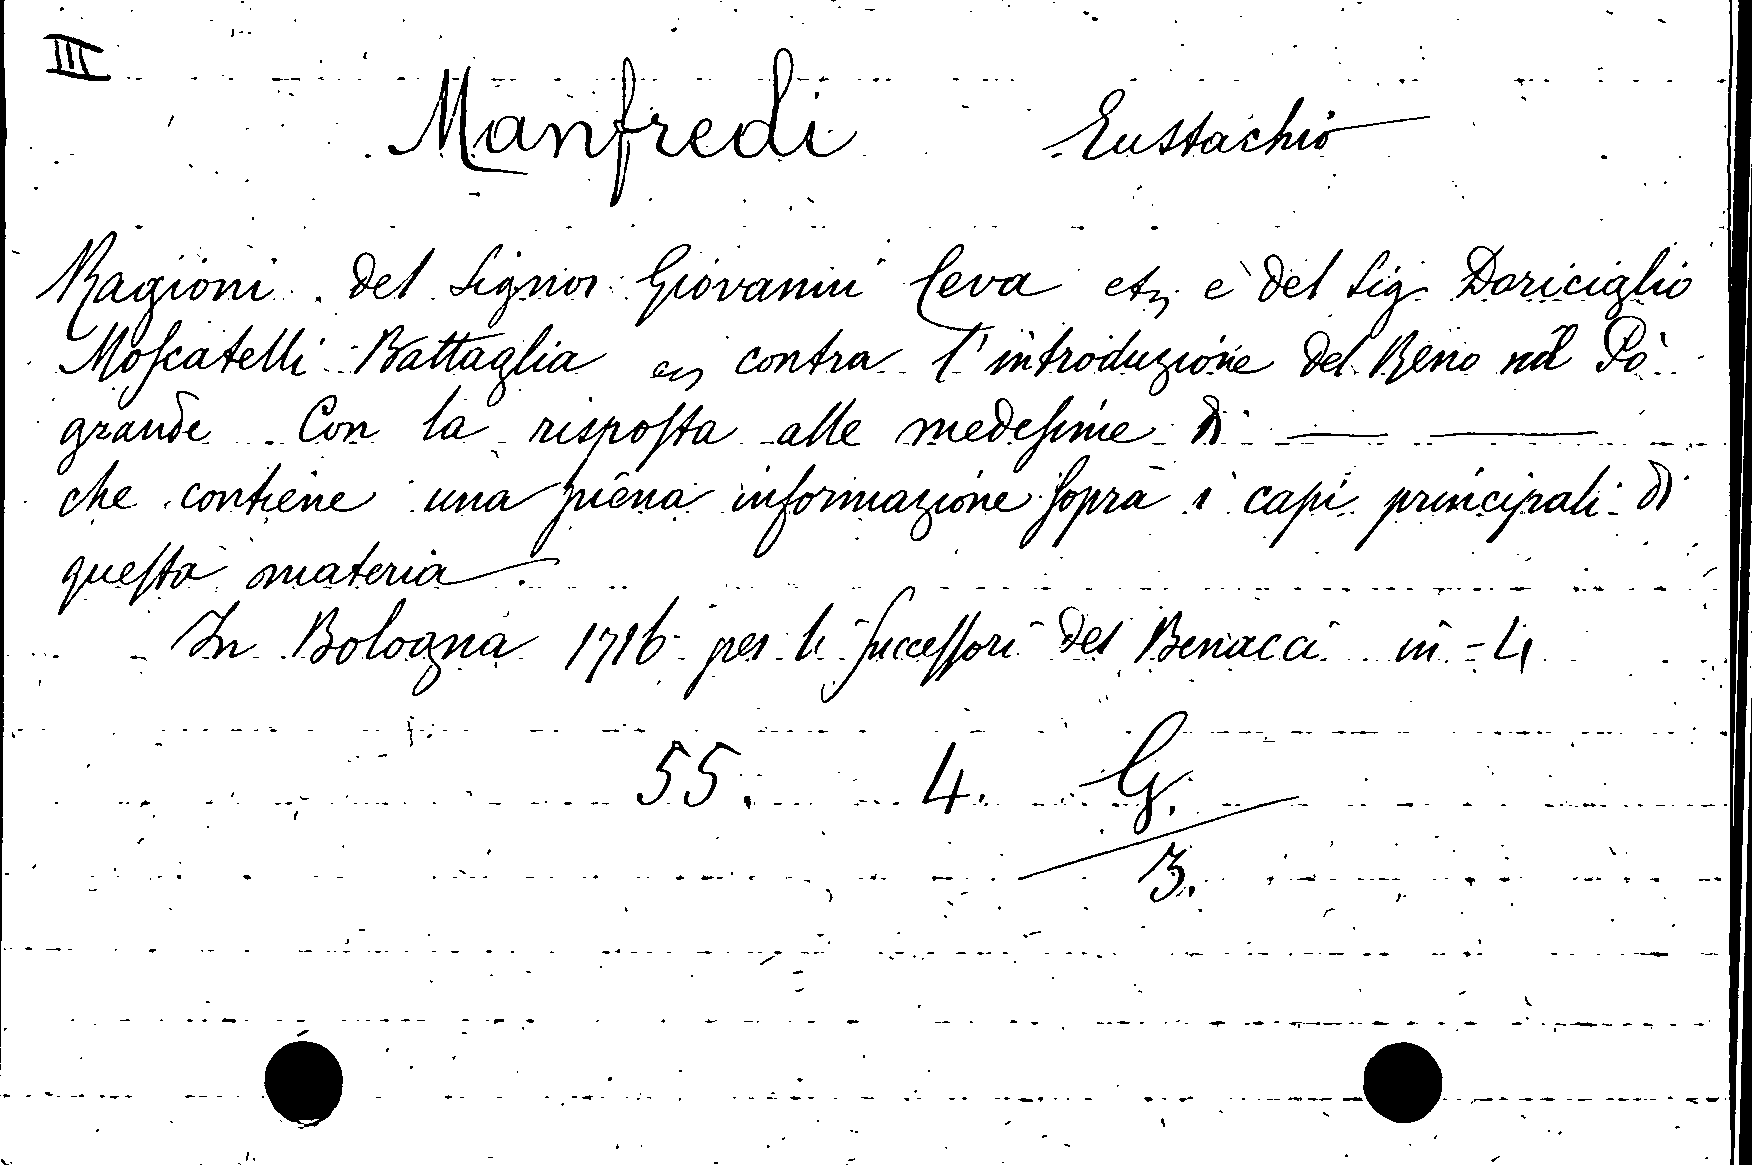 III
Manfredi Eustachio
Ragioni del Signor Giovanni Ceva etc, e del Sig. Doriciglio
Moscatelli Battaglia ec, contra l'introduzione del Reno nel Pò
grande. Con la risposta alle medesime di — —
che contiene una piena informazione sopra i capi principali di
questa materia.
In Bologna 1716 per li successori del Benacci in-4
55. 4. G.
3.